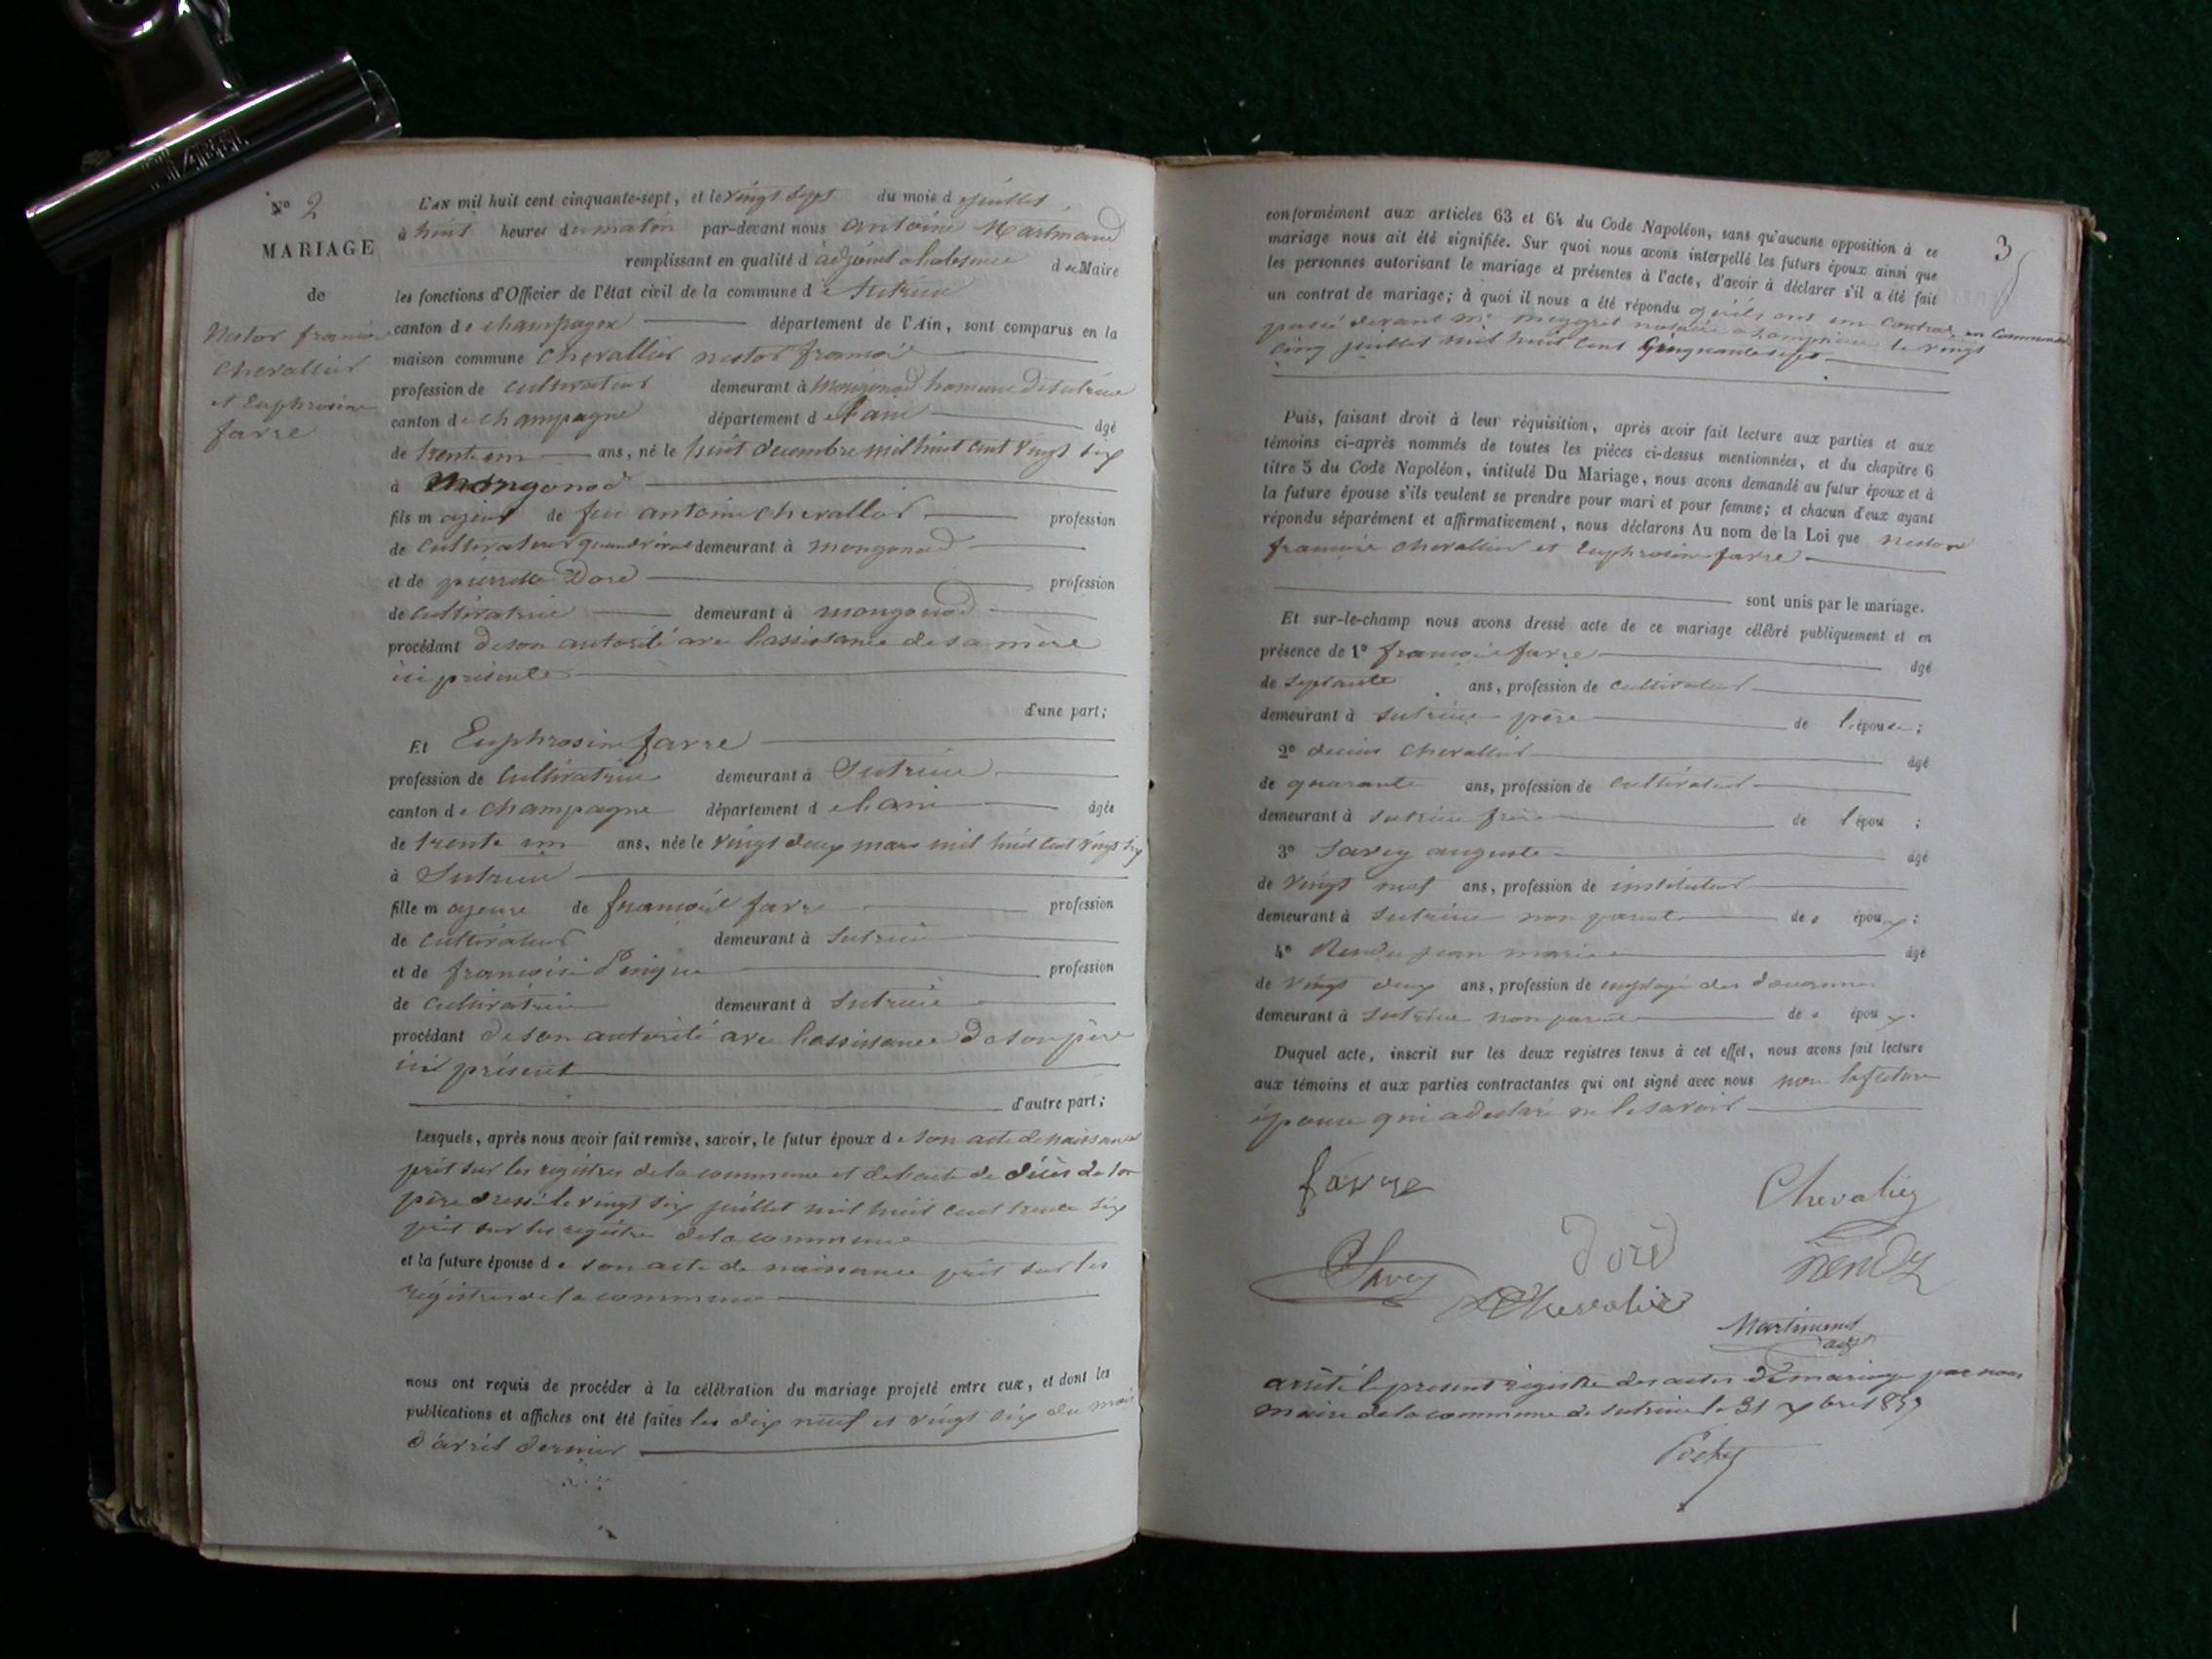 N° 2
MARIAGE
de
Nestor françois
Chevallier
et Euphrosine
farre
L'AN mil huit cent cinquante-sept, et le vingt sept du mois d juillet
à huit heures du matin par-devant nous antoine Martinand
remplissant en qualité d adjoint absence du Maire
les fonctions d'Officier de l'état civil de la commune de Sutrieu
canton de champagne département de l'Ain, sont comparus en la
maison commune Chevallier nestor françois
profession de cultivateur demeurant à mongonod de sutrieu
canton de champagne département de l'ain âgé
de trente un ans, né le huit decembre mil huit cent vingt six
à Mongonod
fils majeur de feu antoine chevallier profession
de cultivateur demeurant à mongonod
et de pierrette Doré profession
de cultivatrice demeurant à mongonod
procédant de son autorité avec l'assistance de sa mère
ici présente
d'une part;
Et Euphrosine farre
profession de cultivatrice demeurant à Sutrieu
canton de champagne département de l'ain âgée
de trente un ans, née le vingt deux mars mil huit cent vingt six
à Sutrieu
fille majeure de françois farre profession
de cultivateur demeurant à sutrieu
et de françoise profession
de cultivatrice demeurant à sutrieu
procédant de son autorité avec l'assistance de son père
ici présent
d'autre part;
Lesquels, après nous avoir fait remise, savoir, le futur époux de son acte de naissance
prit sur les registres de la commune et de l'acte de décès de son
père dressé le vingt six juillet mil huit cent trente six
prit sur les registre de la commune
et la future épouse de son acte de naissance prit sur les
régistres de la commune
nous ont requis de procéder à la célébration du mariage projeté entre eux, et dont les
publications et affiches ont été faites les dix neuf et vingt six du mois
d'avril dernier
3
conformément aux articles 63 et 64 du Code Napoléon, sans qu'aucune opposition à ce
mariage nous ait été signifiée. Sur quoi nous avons interpellé les futurs époux ainsi que
les personnes autorisant le mariage et présentes à l'acte, d'avoir à déclarer s'il a été fait
un contrat de mariage; à quoi il nous a été répondu qu'ils ont un contrat
passé devant me notaire le vingt
cinq juillet mil huit cent cinquante sept
Puis, faisant droit à leur réquisition, après avoir fait lecture aux parties et aux
témoins ci-après nommés de toutes les pièces ci-dessus mentionnées, et du chapitre 6
titre 5 du Code Napoléon, intitulé Du Mariage, nous avons demandé au futur époux et à
la future épouse s'ils veulent se prendre pour mari et pour femme; et chacun d'eux ayant
répondu séparément et affirmativement, nous déclarons Au nom de la Loi que nestor
françois chevallier et Euphrosine farre
sont unis par le mariage.
Et sur-le-champ nous avons dressé acte de ce mariage célébré publiquement et en
présence de 1° françois farre âgé
de septante ans, profession de cultivateur
demeurant à sutrieu père de l'épouse;
2° chevallier âgé
de quarante ans, profession de cultivateur
demeurant à sutrieu frère de l'épou ;
3° Savey auguste âgé
de vingt neuf ans, profession de instituteur
demeurant à sutrieu non parent des époux;
4° Rendu jean marie âgé
de vingt deux ans, profession de employé des douannes
demeurant à sutrieu non parent des époux.
Duquel acte, inscrit sur les deux registres tenus à cet effet, nous avons fait lecture
aux témoins et aux parties contractantes qui ont signé avec nous non la future
épouse qui a declaré ne le savoir
farre
Chevalier
Savey
doré
Rendu
Chevalier
Martinand
adj
arrêté le present régistre des actes de mariage par nous
maire de la commune de sutrieu le 31 xbre 1857